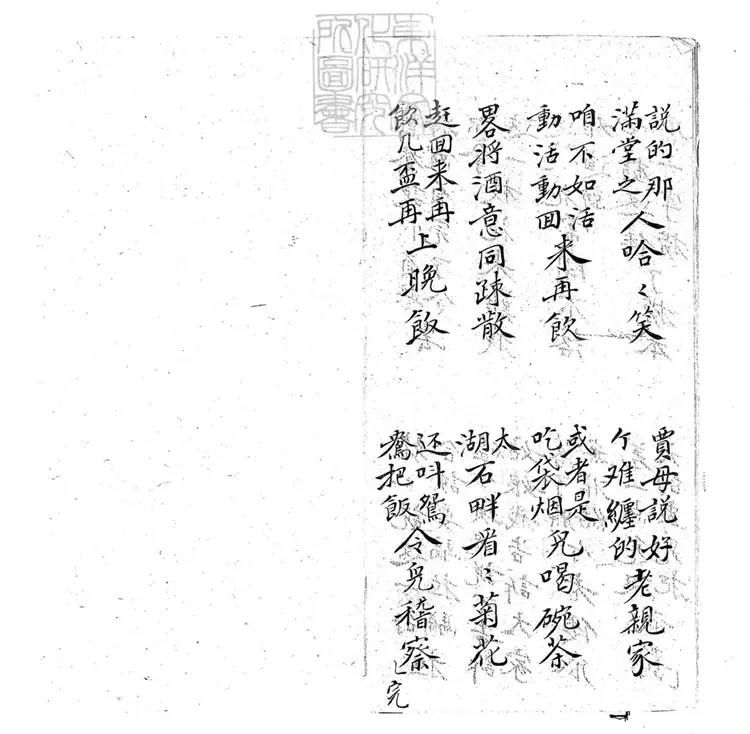 說的那滿堂之人哈〻笑
賈母說好个难纏的老親家
咱不如活動活動回来再飲
或者是吃袋烟兒喝碗茶
畧将酒意同疎散
太湖石畔看〻菊花
赶回来再飲几盃再上晚飯
还叫鴛鴦把飯令兒稽察
完
東洋文
化研究
所圖書